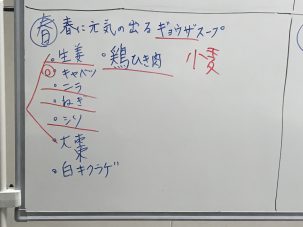 春 春に元気の出るギョウザスープ
。生姜 。鶏ひき肉 小麦
。キャベツ
。ニラ
。ねぎ
。シソ
。大棗
。白キクラゲ